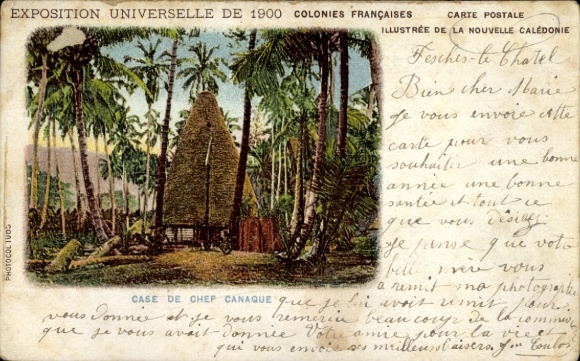 EXPOSITION UNIVERSELLE DE 1900 COLONIES FRANÇAISES CARTE POSTALE
ILLUSTRÉE DE LA NOUVELLE CALÉDONIE
Fesches-le Chatel
Bien cher Marie
je vous envoie cette
carte pour vous
souhaiter une bonne
année une bonne
santée et tout ce
que vous désirez
je pense que votre
belle mère vous
a remit ma photographie
que je lui avoit remit pour
vous donnée et je vous remercie beaucoup de la
que je vous avait donnée Votre amie pour la vie
qui vous envoie ses meilleurs baisers
PHOTOCOL TUOS
CASE DE CHEF CANAQUE